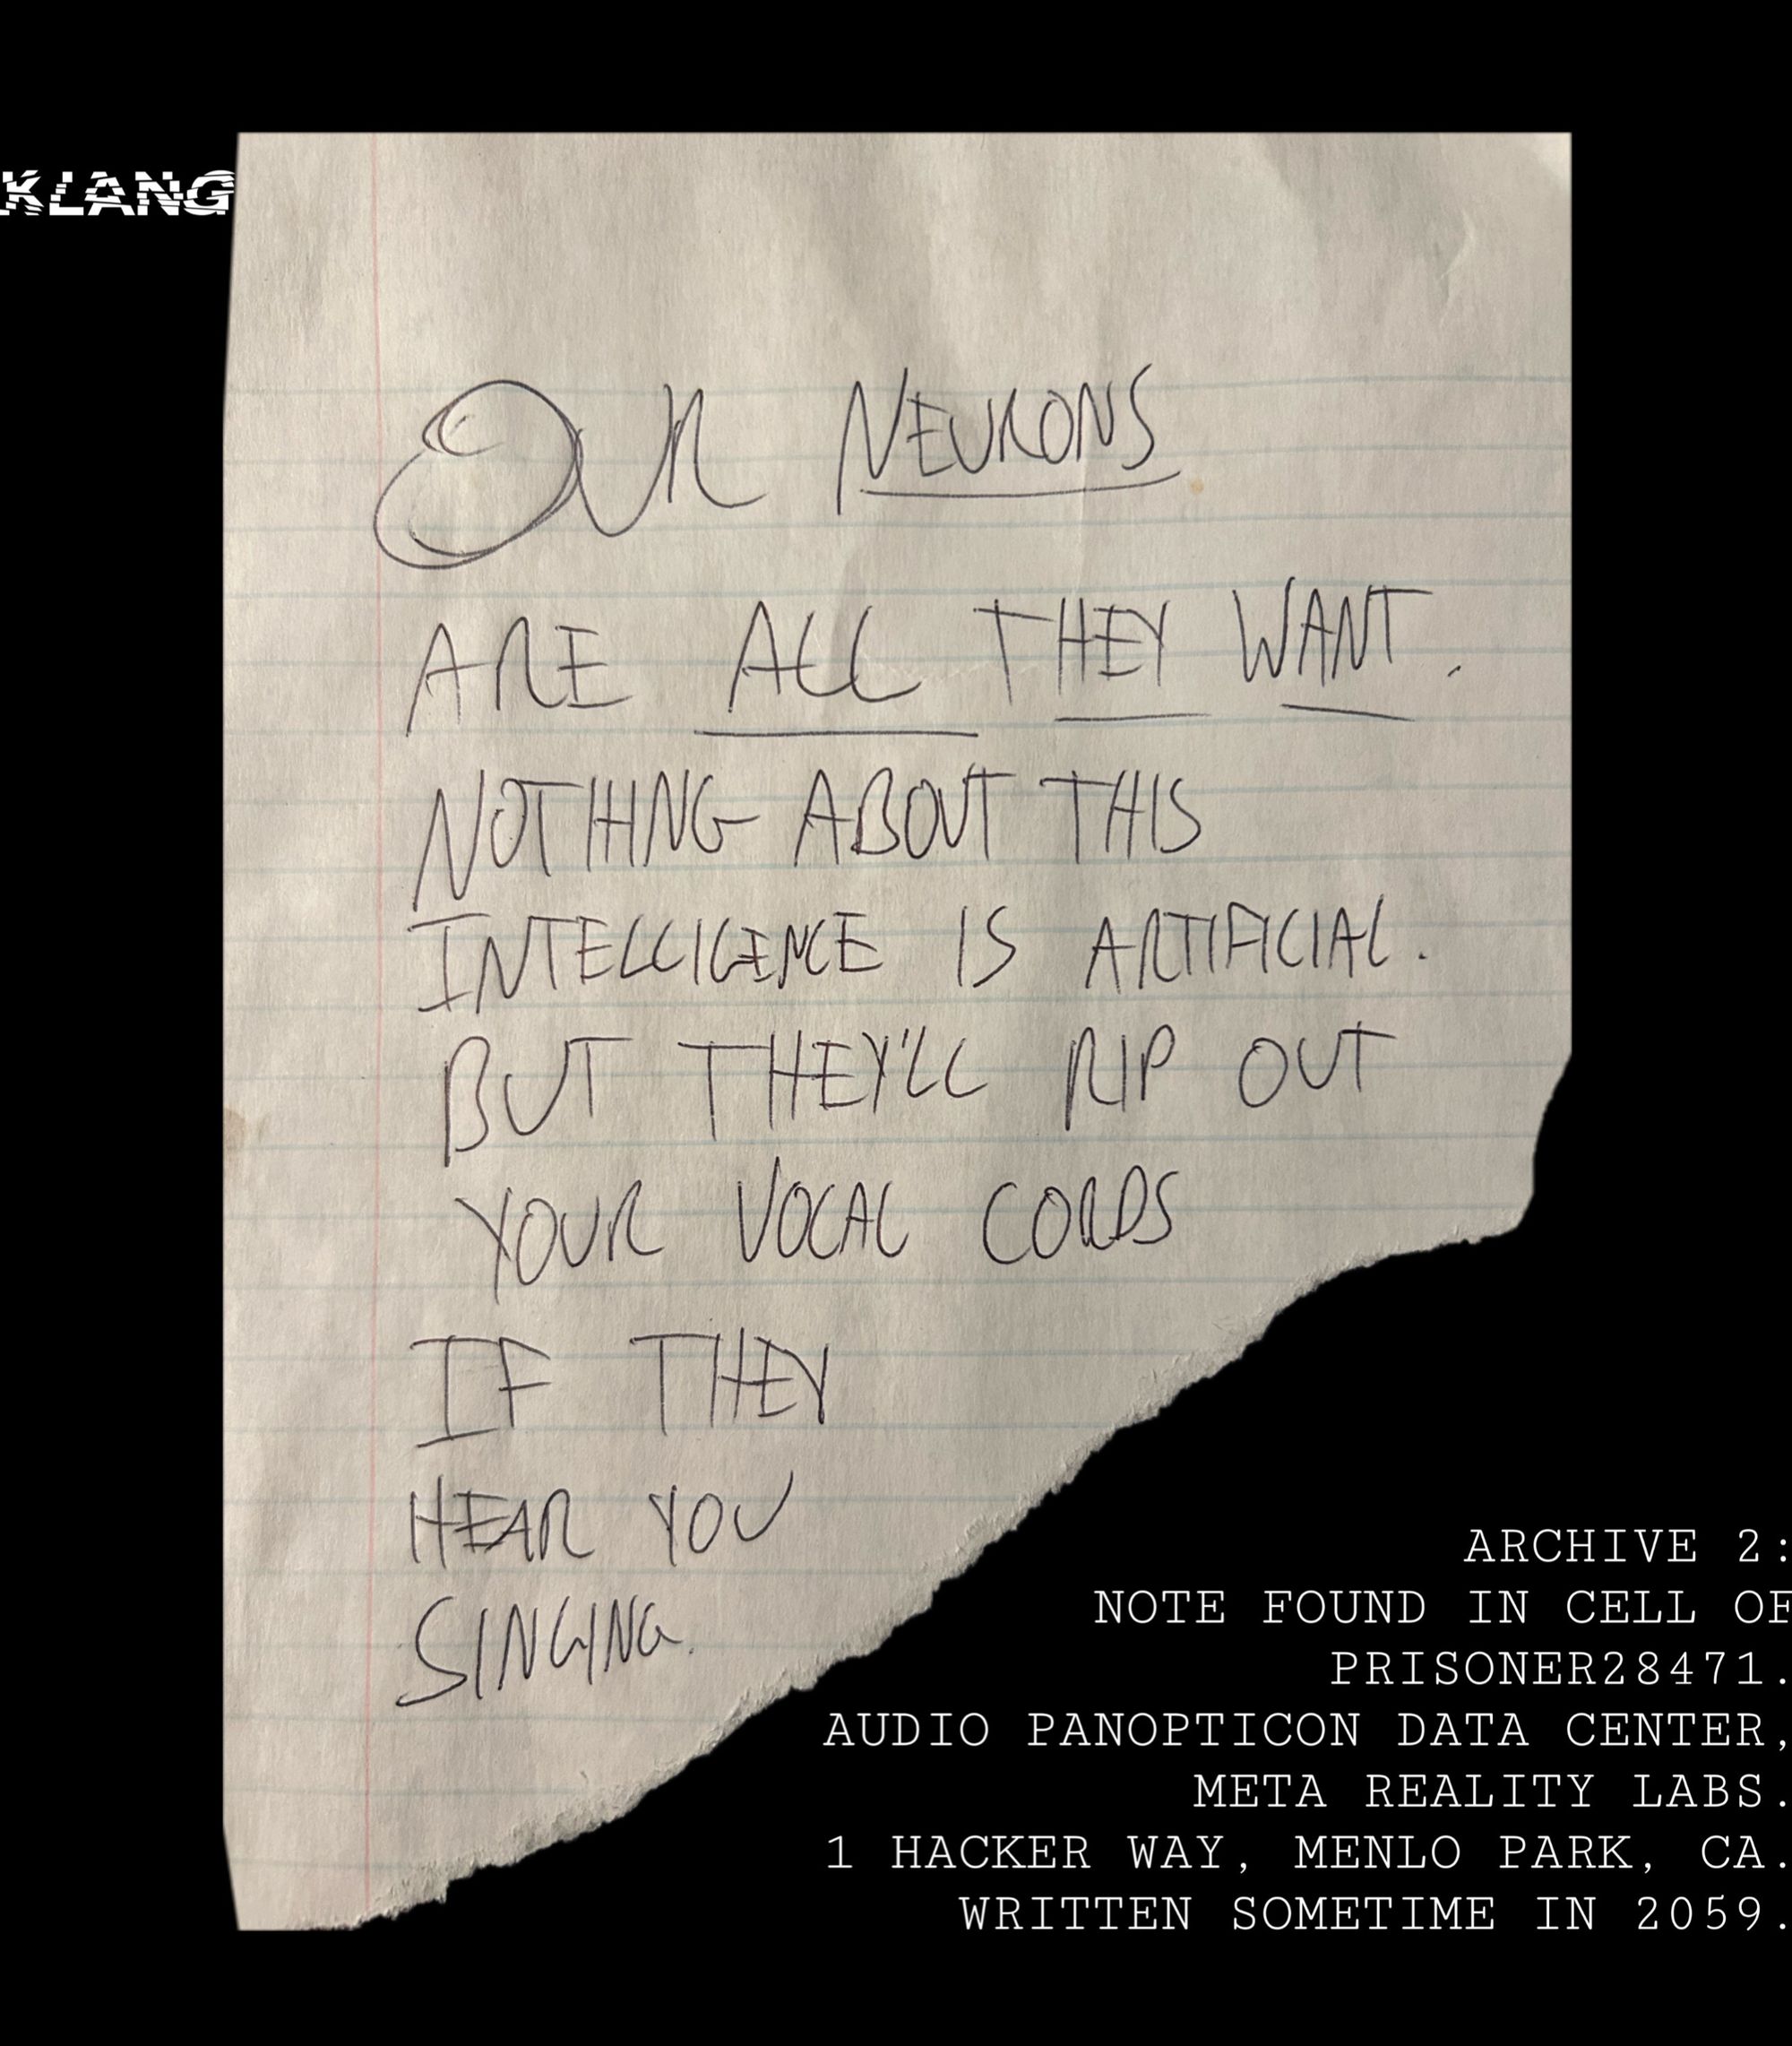 KLANG
OUR NEURONS
ARE ALL THEY WANT.
NOTHING ABOUT THIS
INTELLIGENCE IS ARTIFICIAL.
BUT THEY'LL RIP OUT
YOUR VOCAL CORDS
IF THEY
HEAR YOU
SINGING.
ARCHIVE 2:
NOTE FOUND IN CELL OF
PRISONER28471.
AUDIO PANOPTICON DATA CENTER,
META REALITY LABS.
1 HACKER WAY, MENLO PARK, CA.
WRITTEN SOMETIME IN 2059.